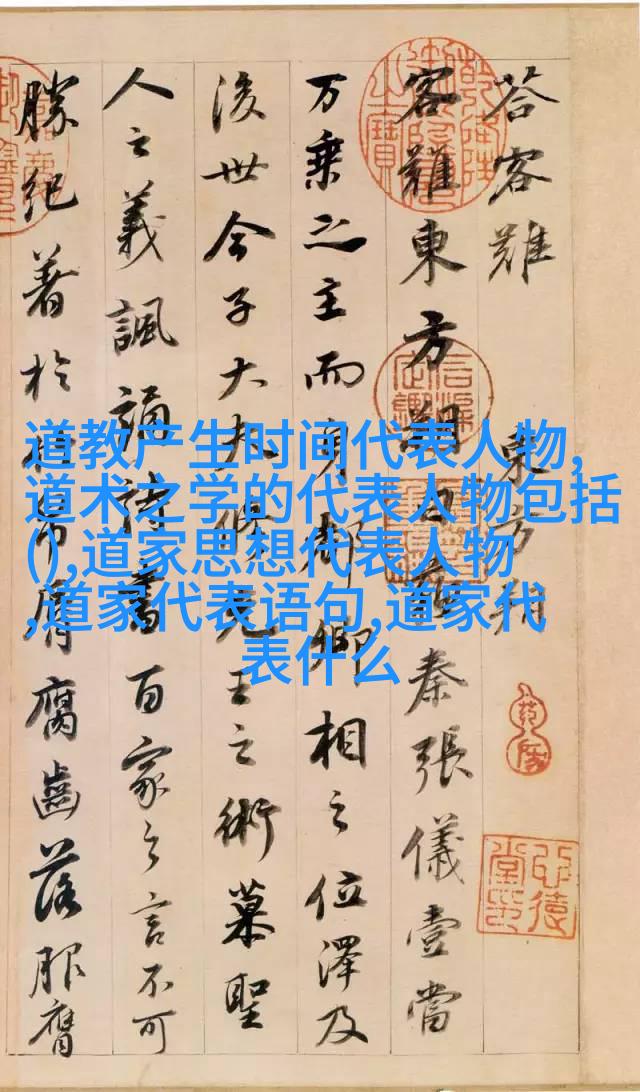 荅客難 東方朔
客難東方朔曰蘇秦張儀壹當
万乗之主而身都卿相之位澤及
後世今子大夫脩先王之術慕聖
人之義諷誦詩書百家之言不可
勝紀著於竹帛脣腐齒落服膺
道教产生时间代表人物,
道术之学的代表人物包括
(),道家思想代表人物
,道家代表语句,道家代
表什么